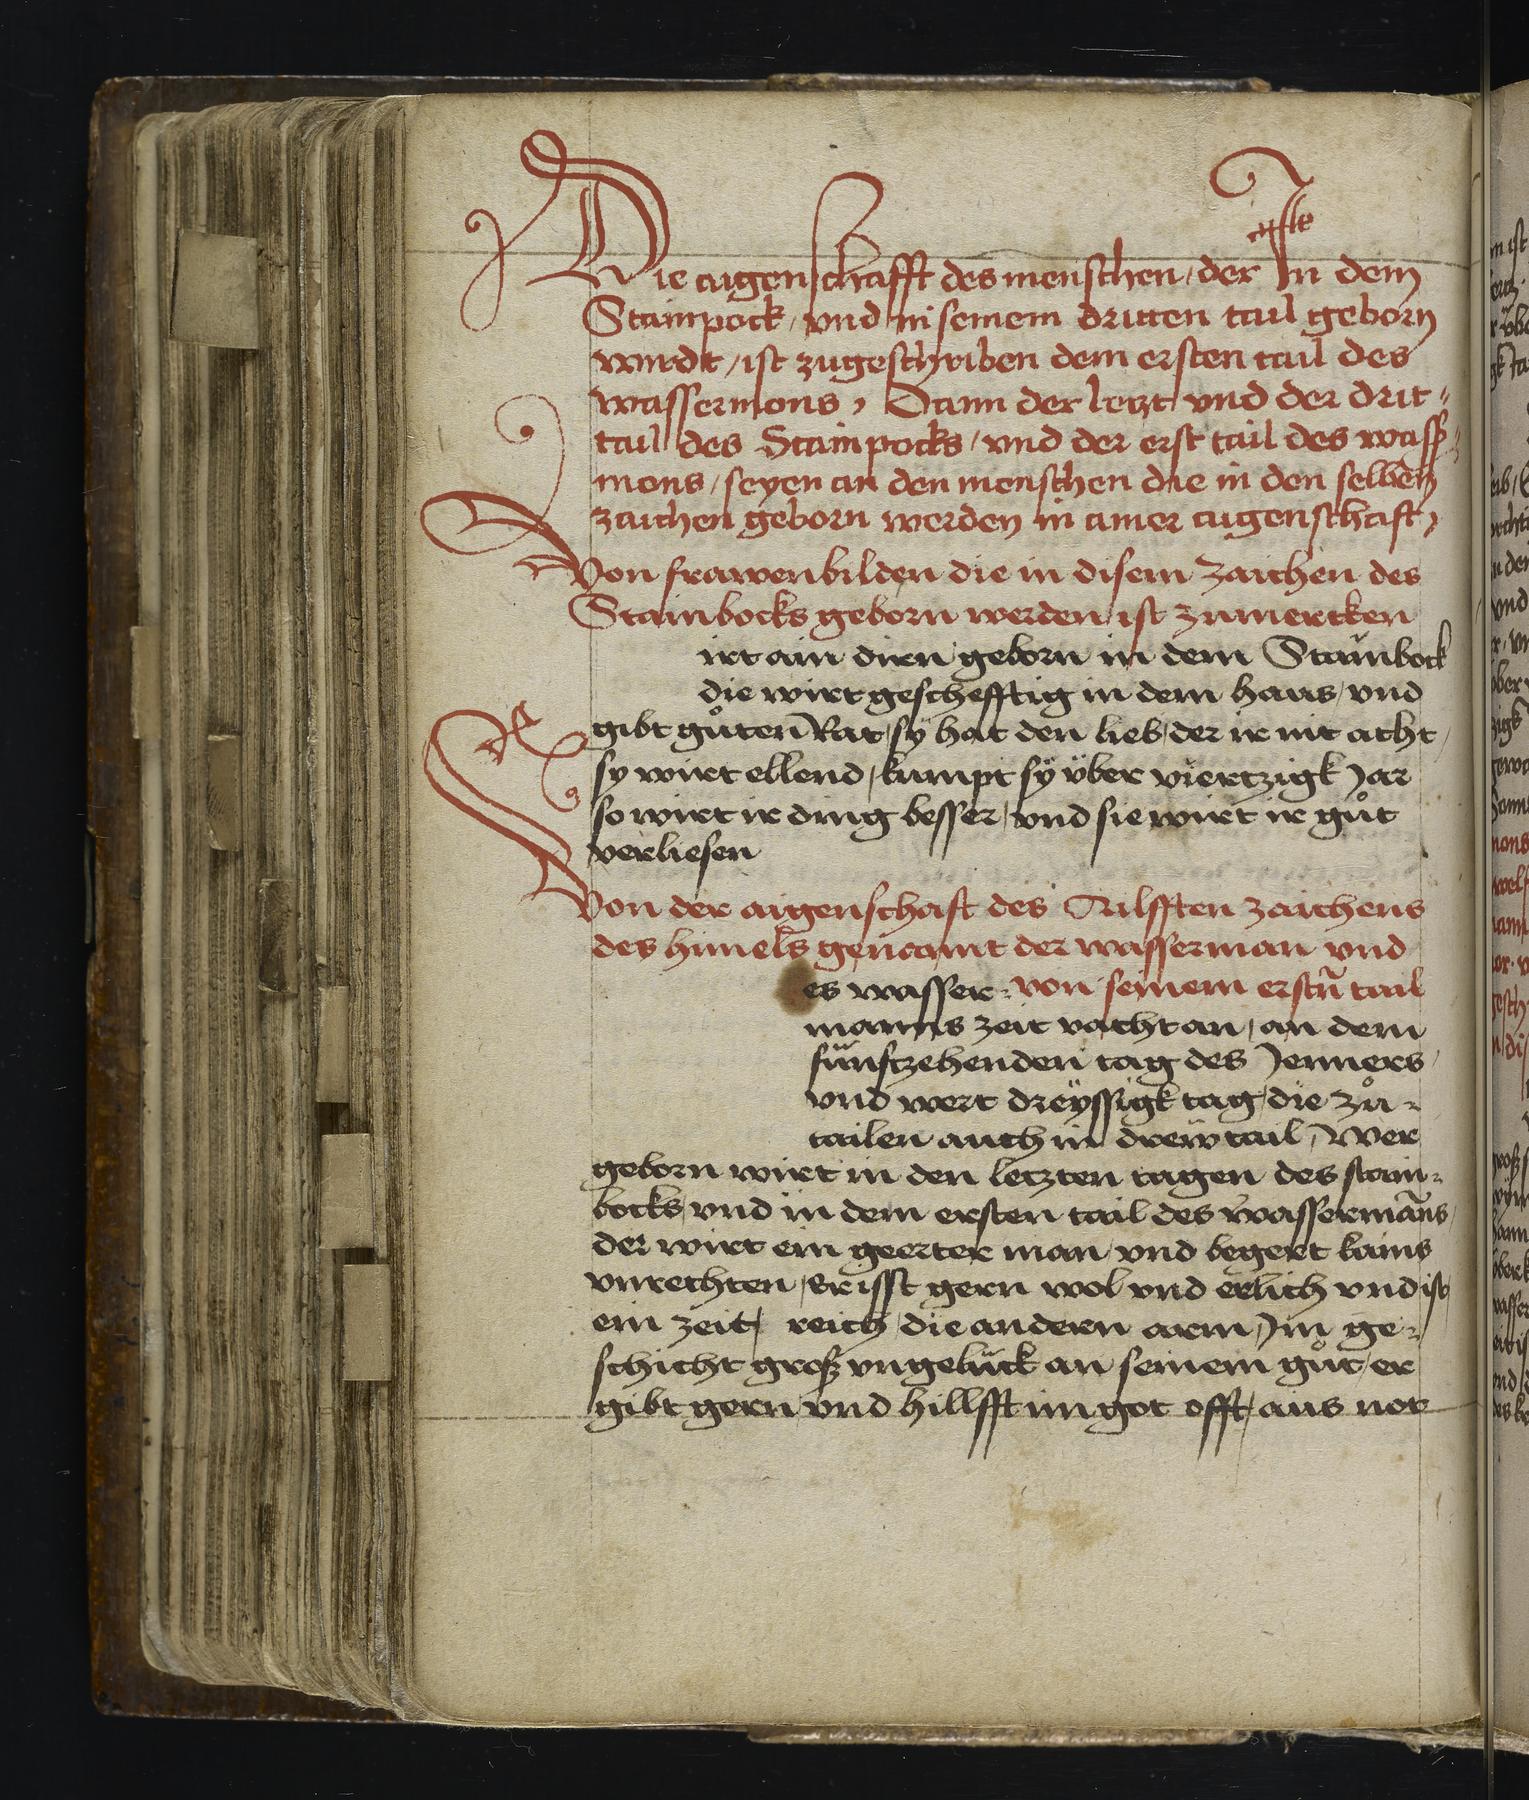 Die aigenschafft des menschen / der In dem
Stainpock / vnd in seinem dritten tail geborn
wirdt / ist zugeschriben dem ersten tail des
wassermons, Dann der letzt vnd der drit⸗
tail des Stainpocks / vnd der erst tail des wass⸗
mons / seyen an den menschen die in den selben
zaichen geborn werden in ainer aigenschaft,
Von frawenbilden die in disem zaichen des
Stainbocks geborn werden ist zumercken
irt ain dirn geborn in dem Stainbock
die wirt geschefftig in dem haus / vnd
gibt gůten Rat / sÿ hat den lieb / der ir nit acht /
sy wirt ellend / kumpt sÿ über viertzigk Jar
so wirt ir ding besser / vnd sie wirt ir gůt
verliesen
Von der aigenschaft des Ailfften zaichens
des himels genamt der wasserman vnd
es wasser⸗ von seinem erstn̄ tail
manns zeit vacht an / an dem
fünftzehenden tag des Jenners /
vnd wert dreÿssigk tag / die zů⸗
tailen auch in drew tail / Wer
geborn wirt in den letzten tagen des stain⸗
bocks vnd in dem ersten tail des wassermāns /
der wirt ein geerter man vnd begert kains
vnrechten / Er isst gern wol vnd erlich vnd ist
ein zeit / reich / die andern arm / Im ge⸗
schicht groß vngelück an seinem gůt / er
gibt gern vnd hillfft im got offt / aus not